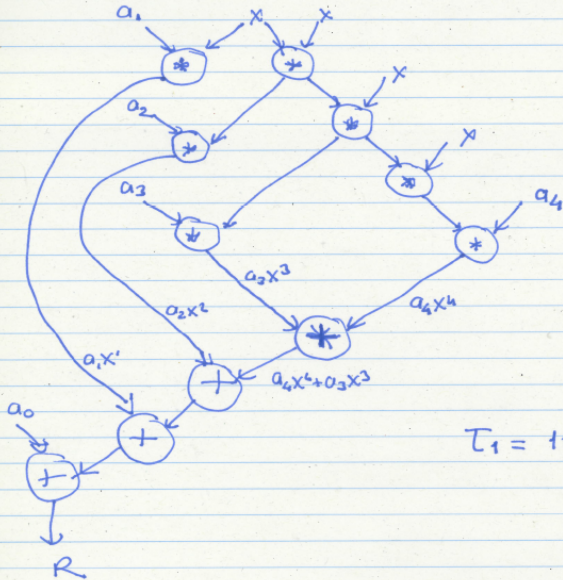 a₁ x x
* * x
a₂ * x
*
a₃ * a₄
* *
a₃x³ a₄x⁴
a₂x² *
a₁x¹ + a₄x⁴+a₃x³
a₀ +
+ T₁ = 1
R